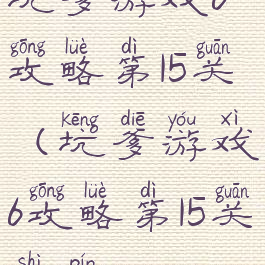 坑爹游戏6
gōng lüè dì guān
攻略第15关
kēng diē yóu xì
(坑爹游戏
gōng lüè dì guān
6攻略第15关
shì pín